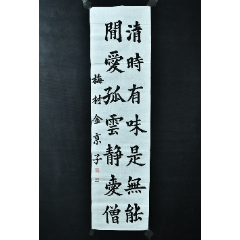 清時有味是無能
閒愛孤雲静愛僧
梅村金京子